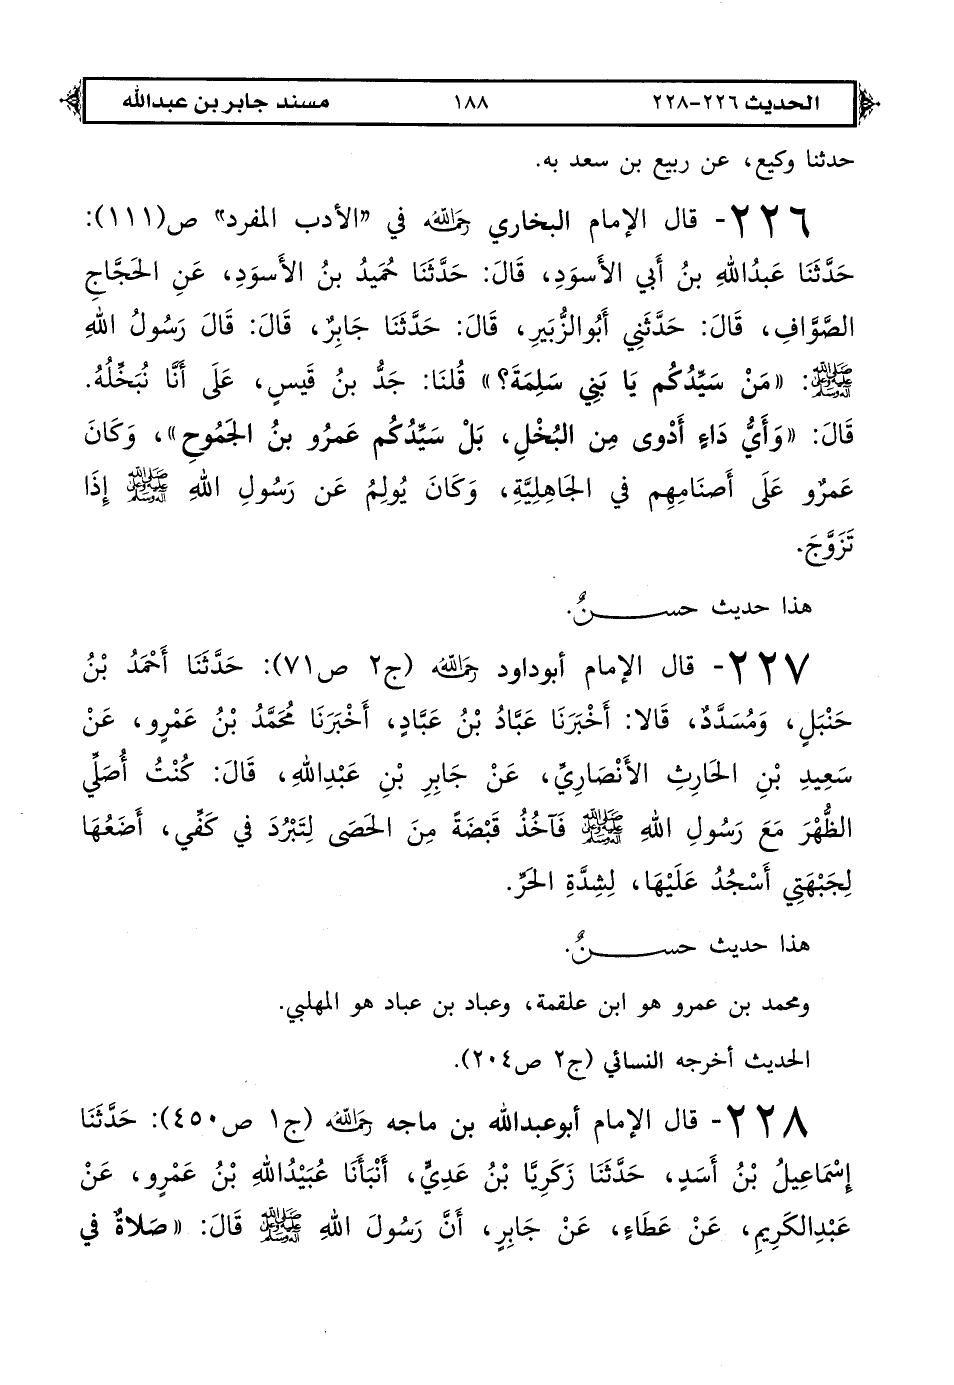 الحديث ٢٢٦-٢٢٨ ١٨٨ مسند جابر بن عبدالله
حدثنا وكيع، عن ربيع بن سعد به.
٢٢٦- قال الإمام البخاري رحمه الله في «الأدب المفرد» ص(١١١):
حَدَّثَنَا عَبدُاللهِ بنُ أَبي الأَسوَدِ، قَالَ: حَدَّثَنَا حُمَيدُ بنُ الأَسوَدِ، عَنِ الحَجَّاجِ
الصَّوَّافِ، قَالَ: حَدَّثَنِي أَبُوالزُّبَيرِ، قَالَ: حَدَّثَنَا جَابِرٌ، قَالَ: قَالَ رَسُولُ اللهِ
ﷺ: «مَنْ سَيِّدُكُم يَا بَنِي سَلِمَةَ؟» قُلنَا: جَدُّ بنُ قَيسٍ، عَلَى أَنَّا نُبَخِّلُهُ.
قَالَ: «وَأَيُّ دَاءٍ أَدْوى مِن البُخْلِ، بَلْ سَيِّدُكُم عَمرُو بنُ الجَمُوحِ»، وَكَانَ
عَمرٌو عَلَى أَصنَامِهِم في الجَاهِلِيَّةِ، وَكَانَ يُولِمُ عَن رَسُولِ اللهِ ﷺ إِذَا
تَزَوَّجَ.
هذا حديث حســـنٌ.
٢٢٧- قال الإمام أبوداود رحمه الله (ج٢ ص٧١): حَدَّثَنَا أَحْمَدُ بْنُ
حَنْبَلٍ، وَمُسَدَّدٌ، قَالا: أَخْبَرَنَا عَبَّادُ بْنُ عَبَّادٍ، أَخْبَرَنَا مُحَمَّدُ بْنُ عَمْرٍو، عَنْ
سَعِيدِ بْنِ الحَارِثِ الأَنْصَارِيِّ، عَنْ جَابِرِ بْنِ عَبْدِاللهِ، قَالَ: كُنْتُ أُصَلِّي
الظُّهْرَ مَعَ رَسُولِ اللهِ ﷺ فَآخُذُ قَبْضَةً مِنَ الحَصَى لِتَبْرُدَ في كَفِّي، أَضَعُهَا
لِجَبْهَتِي أَسْجُدُ عَلَيْهَا، لِشِدَّةِ الحَرِّ.
هذا حديث حســـنٌ.
ومحمد بن عمرو هو ابن علقمة، وعباد بن عباد هو المهلبي.
الحديث أخرجه النسائي (ج٢ ص٢٠٤).
٢٢٨- قال الإمام أبوعبدالله بن ماجه رحمه الله (ج١ ص٤٥٠): حَدَّثَنَا
إِسْمَاعِيلُ بْنُ أَسَدٍ، حَدَّثَنَا زَكَرِيَّا بْنُ عَدِيٍّ، أَنْبَأَنَا عُبَيْدُاللهِ بْنُ عَمْرٍو، عَنْ
عَبْدِالكَرِيمِ، عَنْ عَطَاءٍ، عَنْ جَابِرٍ، أَنَّ رَسُولَ اللهِ ﷺ قَالَ: «صَلاةٌ في